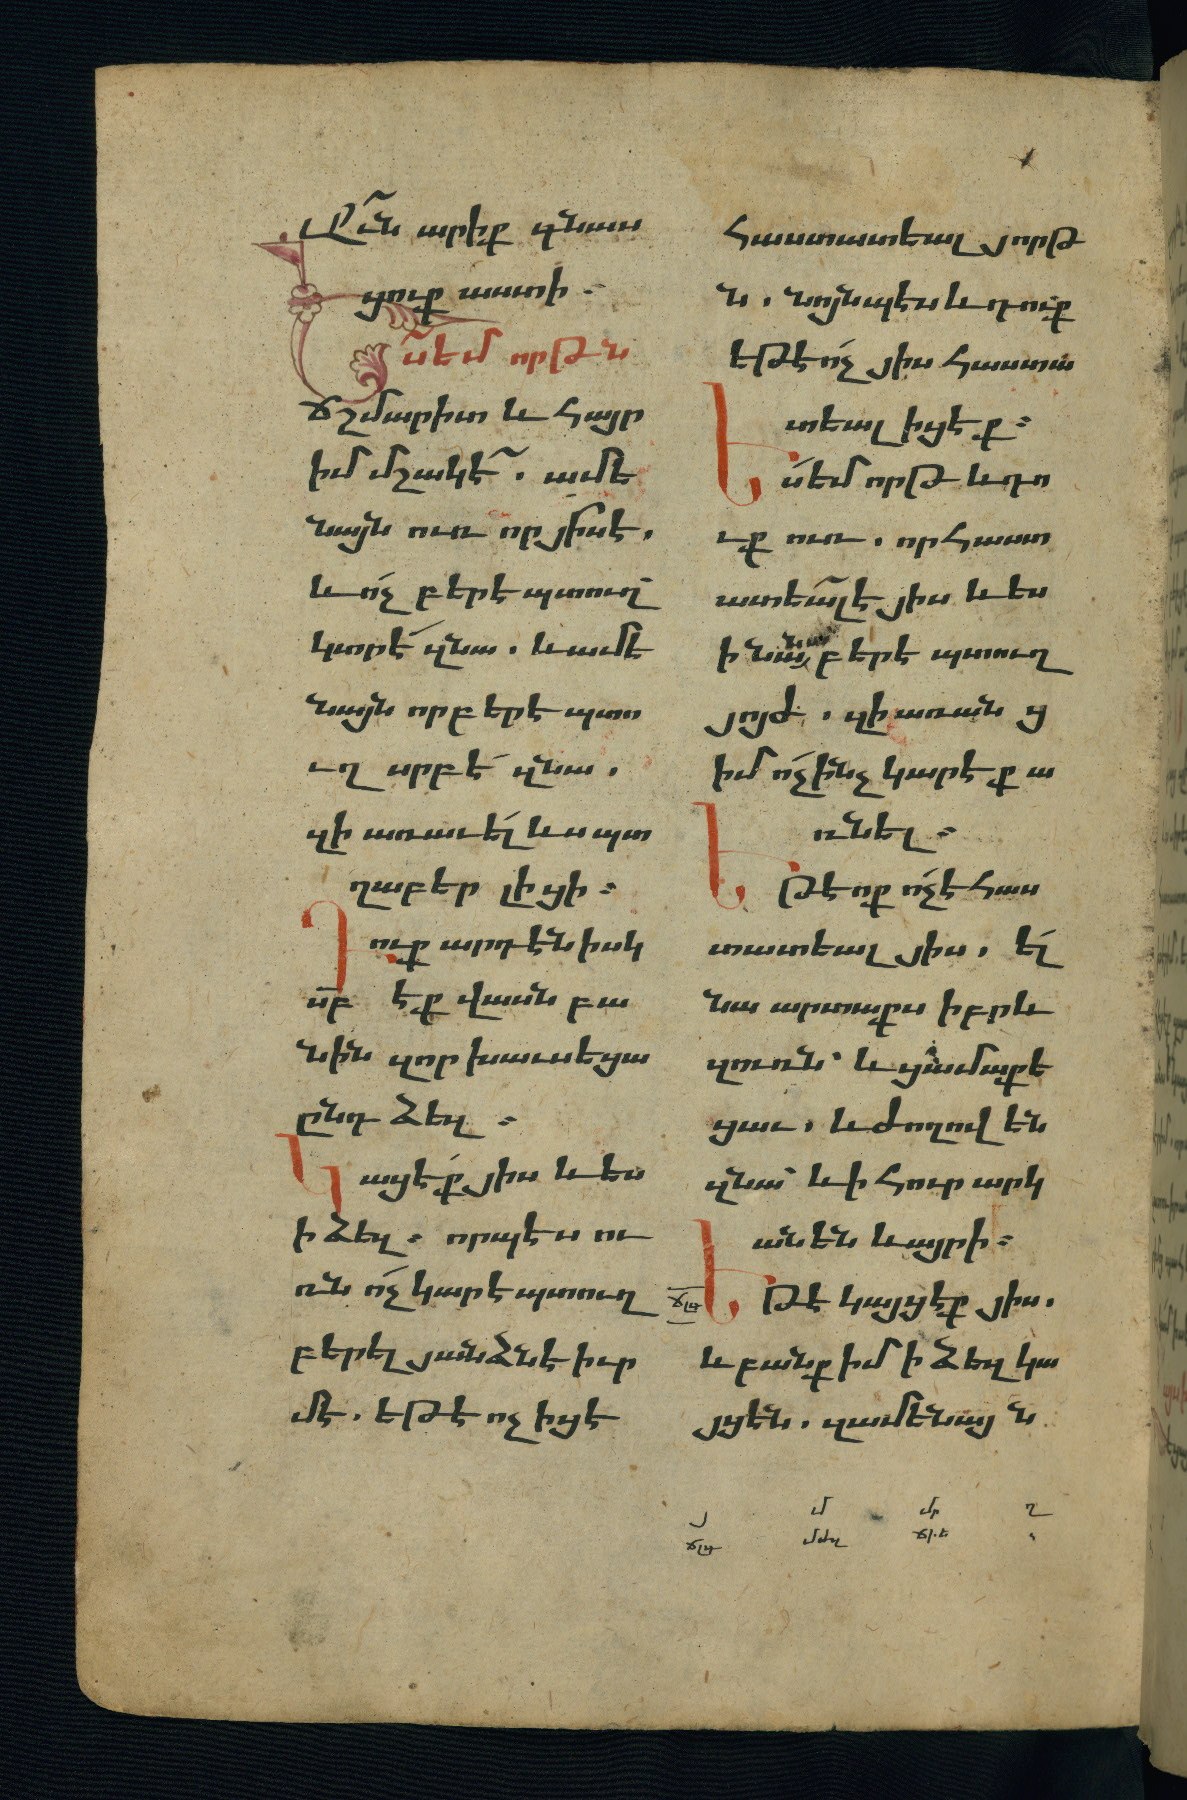 արիք գնաս
ցուք աստի։
Ես եմ որթն
ճշմարիտ և հայր
իմ մշակ է. ամե
նայն ուռ որ յիս է.
և ոչ բերէ պտուղ՝
կտրէ զնա. և ամե
նայն որ բերէ պտո
ւղ սրբէ զնա.
զի առաւել ևս պտ
ղաբեր լիցի։
Դուք արդէն իսկ
սբ էք վասն բա
նին զոր խաւսեցա
ընդ ձեզ։
Կացէք յիս և ես
ի ձեզ։ որպէս ու
ռն ոչ կարէ պտուղ
բերել յանձնէ իւր
մէ. եթէ ոչ իցէ
հաստատեալ յորթ
ն. նոյնպէս և դուք
եթէ ոչ յիս հաստա
տեալ իցէք։
Ես եմ որթ և դո
ւք ուռ. որ հաստ
ատեալ է յիս և ես
ի նմա բերէ պտուղ
յոյժ. զի առանց
իմ ոչինչ կարէք ա
ռնել։
Եթէ ոք ոչ է հաս
տատեալ յիս. ել
նա արտաքս իբրև
զուռն՝ և ցամաքե
ցաւ. և ժողովեն
զնա՝ և ի հուր արկ
անեն և այրի։
ճլզ Եթէ կայցէք յիս.
և բանք իմ ի ձեզ կա
յցեն. զամենայն